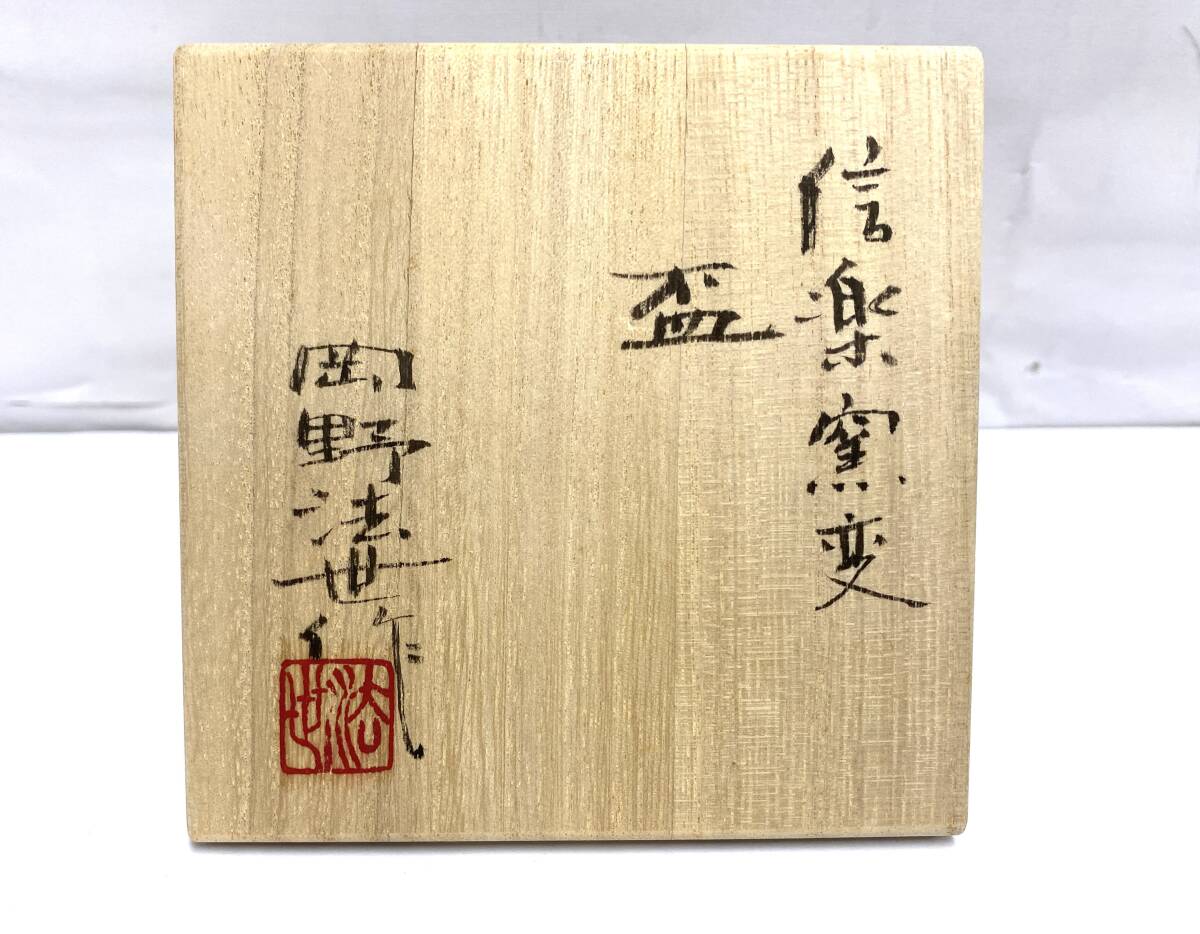 信楽窯変
盃
岡野法世作
法世